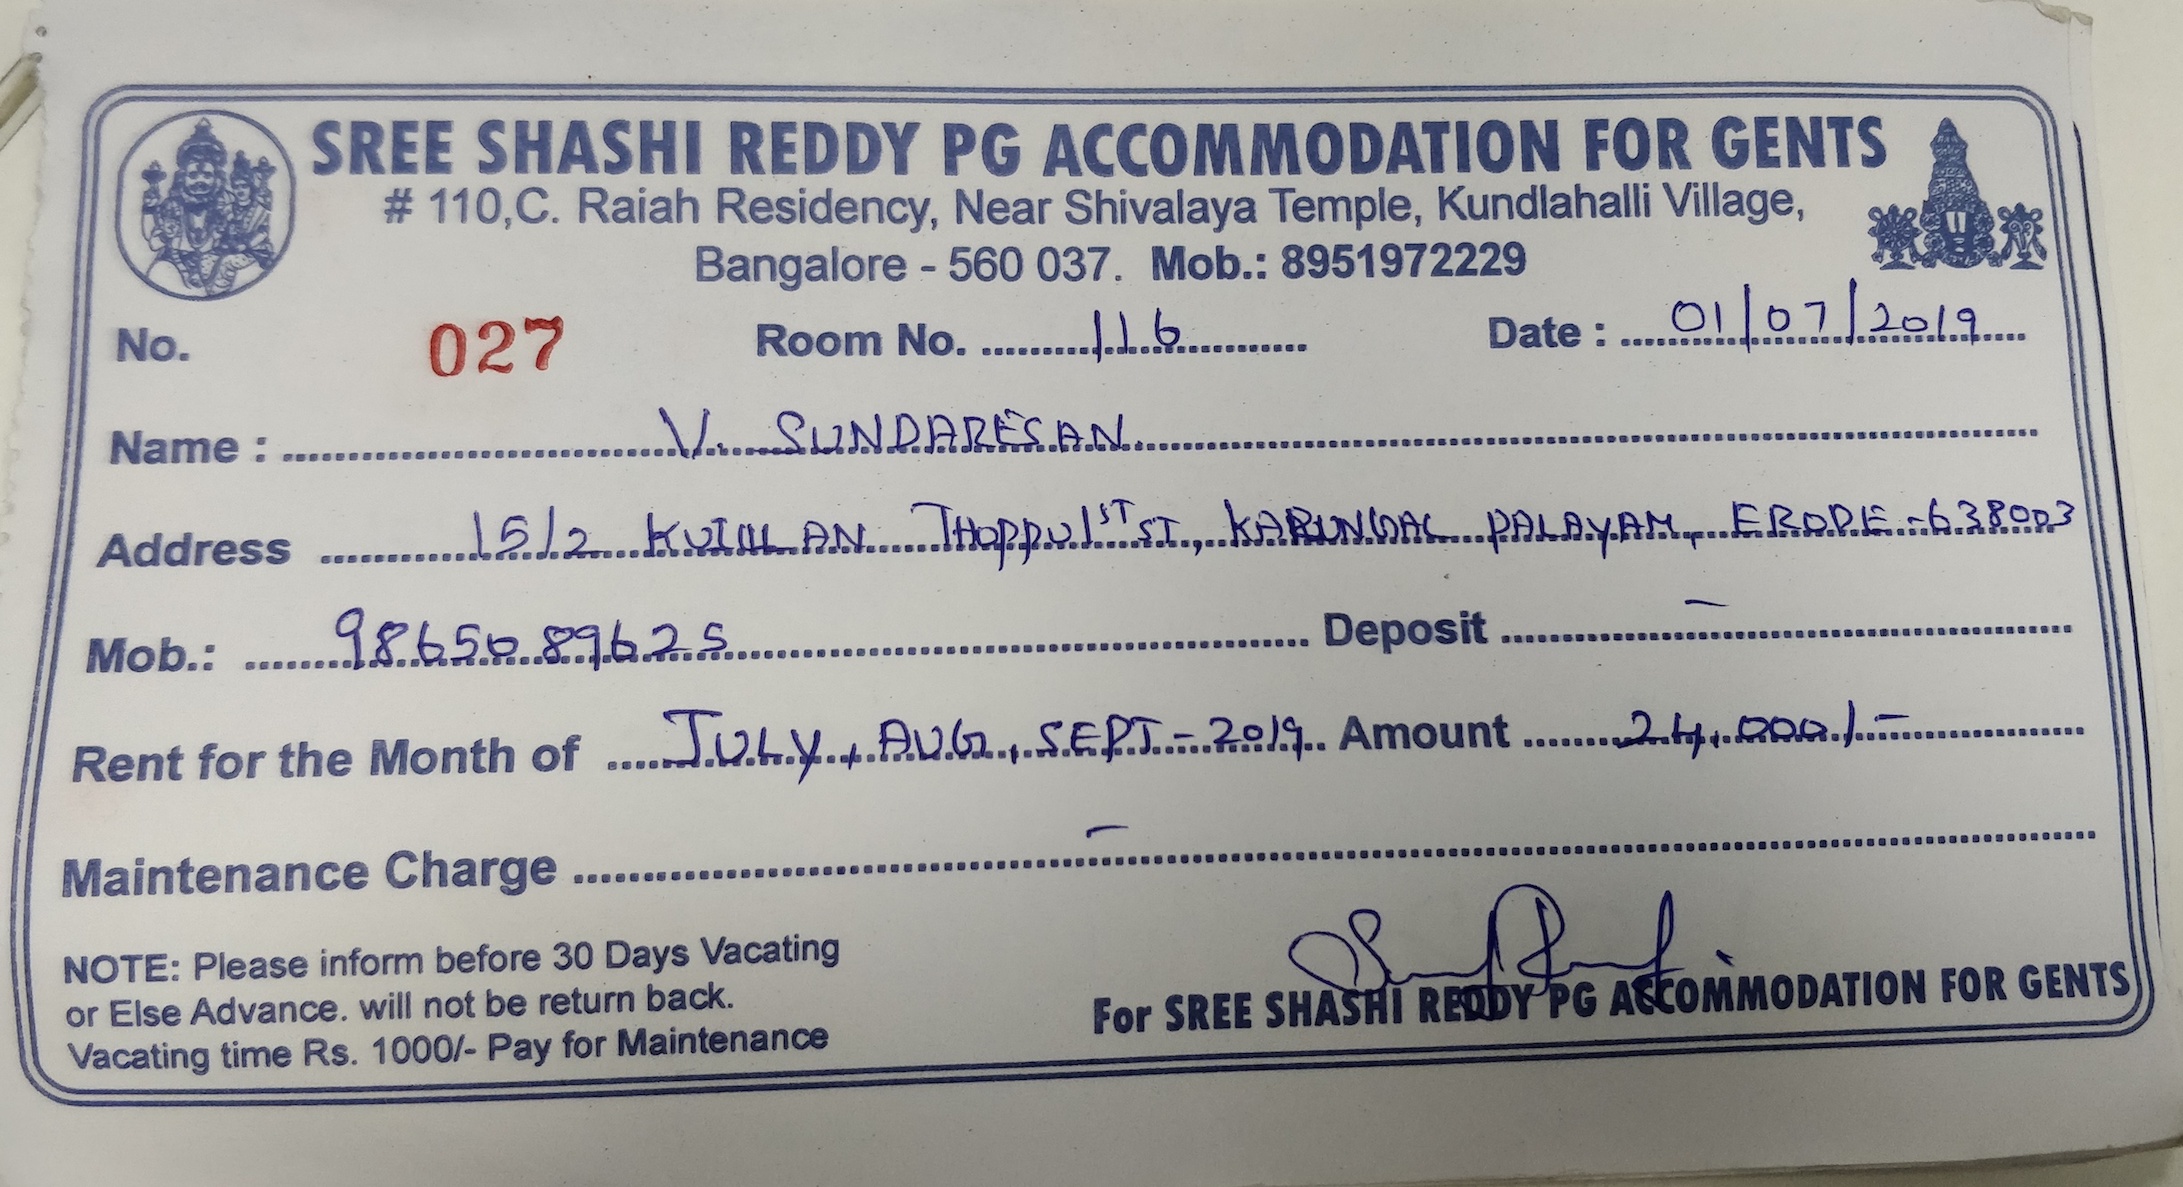 SREE SHASHI REDDY PG ACCOMMODATION FOR GENTS
# 110,C. Raiah Residency, Near Shivalaya Temple, Kundlahalli Village,
Bangalore - 560 037. Mob.: 8951972229
No. 027 Room No. 116 Date : 01/07/2019
Name : V. SUNDARESAN
Address 15/2 THOPPU 1ST ST, KARUNGAL PALAYAM, ERODE - 638003
Mob.: 9865089625 Deposit –
Rent for the Month of JULY, AUG, SEPT - 2019 Amount 24,000/-
Maintenance Charge –
NOTE: Please inform before 30 Days Vacating
or Else Advance. will not be return back.
Vacating time Rs. 1000/- Pay for Maintenance
For SREE SHASHI REDDY PG ACCOMMODATION FOR GENTS